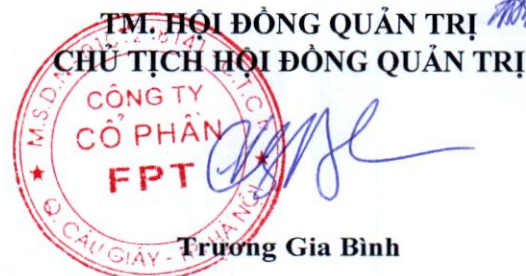 TM. HỘI ĐỒNG QUẢN TRỊ
CHỦ TỊCH HỘI ĐỒNG QUẢN TRỊ
CÔNG TY
CỔ PHẦN
FPT
Q. CẦU GIẤY -
Trương Gia Bình